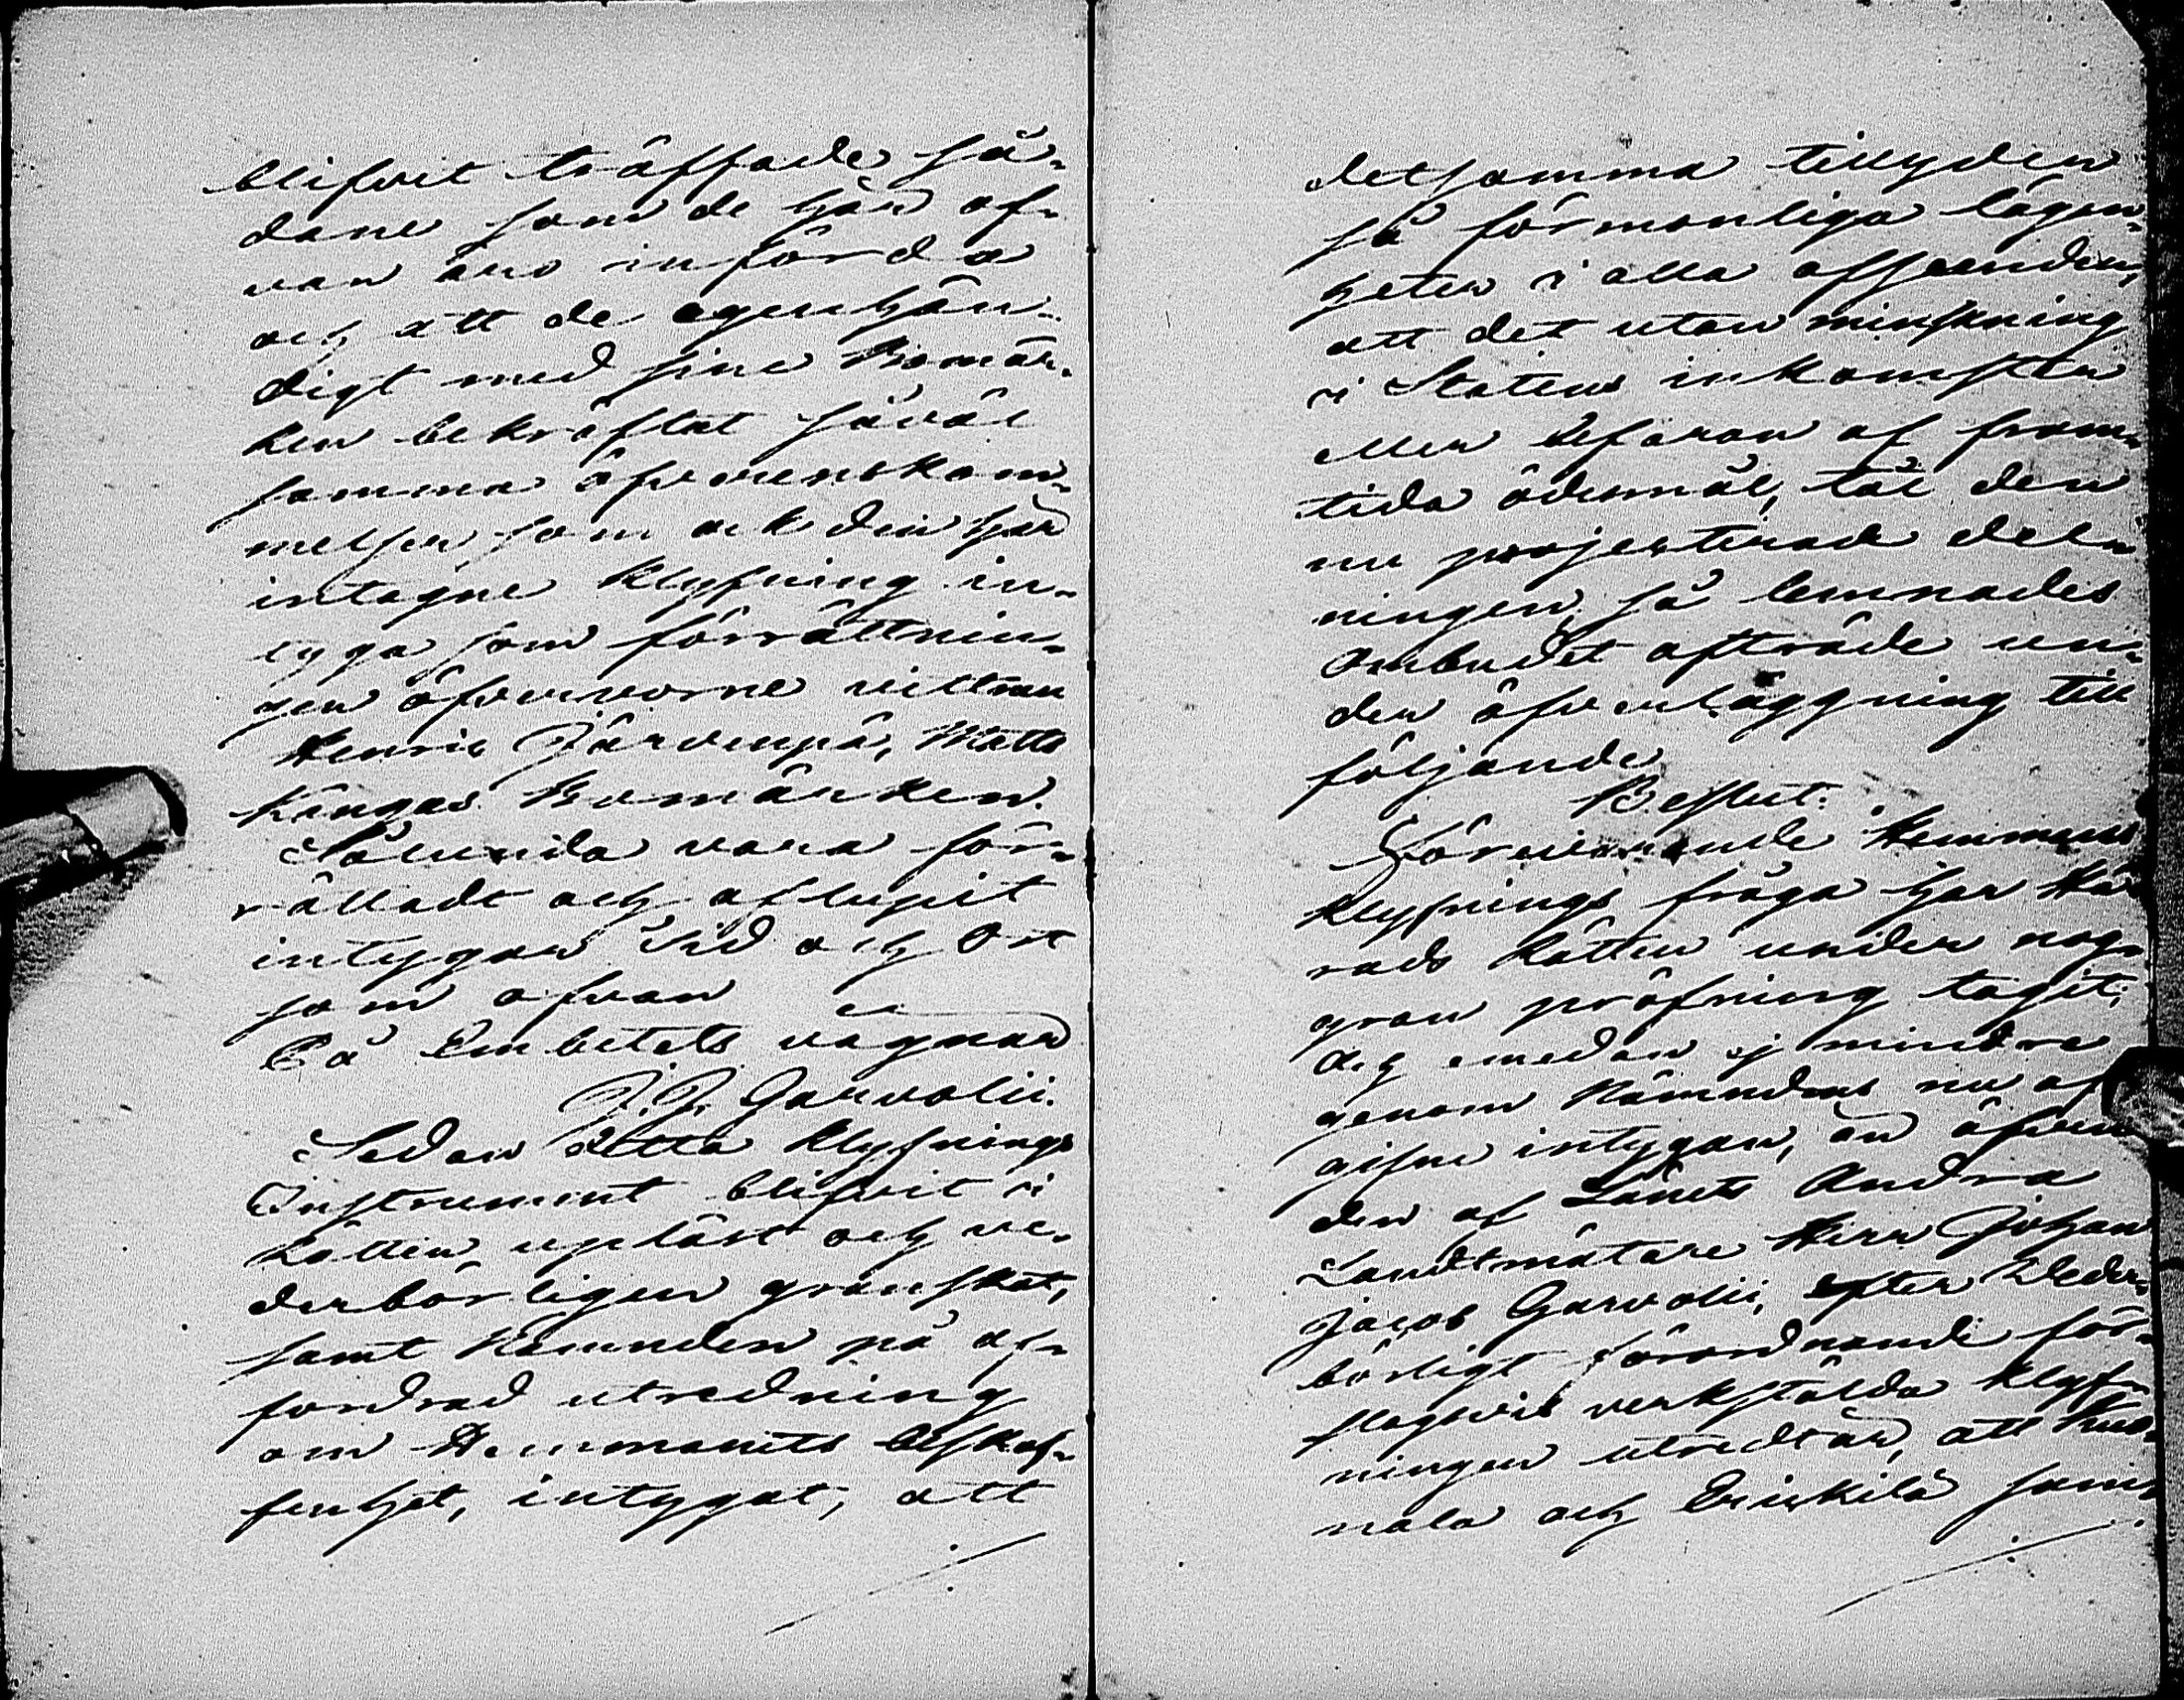 blifvit träffade så-
dane som de här of-
van äro införda
och att de egenhän-
digt med sine Bomär-
ken bekräftat såväl
samma öfverenskom-
melser som ock den här
intagne klyfning in-
tyga som förrättnin-
gen öfvervarne vittnen
Henric Järvenpä, Matts
Kangas Bomärken.
Sålunda vara för-
rättadt och aflupit
intygar Tid och Ort
som ofvan
På Embetets vägnar
J. J. Garvolii.
Sedan detta Klyfnings
Instrument blifvit i
Rätten upläst och ve-
derbörligen granskat,
samt Nämnden på af-
fordrad utredning
om Hemmanets beskaf-
fenhet, intygat, att
detsamma tillyden
så förmonliga lägen-
heter i alla afseenden,
att det utan minskning
i Statens inkomster
eller befaran af fram-
tida ödesmål, tål den
nu projecterade del-
ningen, så lemnades
Ombudet afträde un-
der öfverläggning till
följande
Beslut.
Förevarande Hemmans
klyfnings fråga har Hä-
rads Rätten under nog-
gran pröfning tagit;
Och emedan ej mindre
genom Nämndens nu af
gifne intygan, än äfven
den af Länets Andra
Landtmätare Herr Johan
Jacob Garvolii, efter Veder-
börligt förordnande för-
slagsvis verkstälda klyf-
ningen utredt är, att
nala och Eriskilä